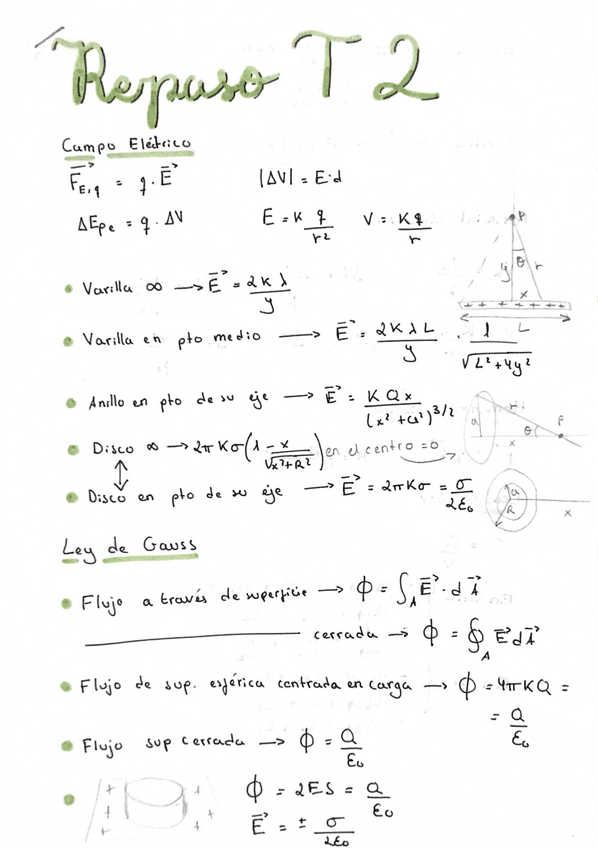 Repaso T2
Campo Elétrico
F⃗E,q = q · E⃗    |ΔV| = E·d
ΔEpe = q · ΔV    E = K q/r²    V = Kq/r
P
y θ r
x
L
• Varilla ∞ → E⃗ = 2Kλ/y
• Varilla en pto medio → E⃗ = 2KλL/y · 1/√(L²+4y²)
• Anillo en pto de su eje → E⃗ = KQx/(x²+a²)^3/2
a r θ P
x
• Disco ∞ → 2πKσ(1 - x/√(x²+R²)) en el centro = 0
↕
• Disco en pto de su eje → E⃗ = 2πKσ = σ/2ε₀
a
R
x
Ley de Gauss
• Flujo a través de superficie → ϕ = ∫A E⃗ · d A⃗
cerrada → ϕ = ∮A E⃗ dA⃗
• Flujo de sup. esférica centrada en carga → ϕ = 4πKQ =
= Q/ε₀
• Flujo sup cerrada → ϕ = Q/ε₀
• ϕ = 2ES = Q/ε₀
E⃗ = ± σ/2ε₀